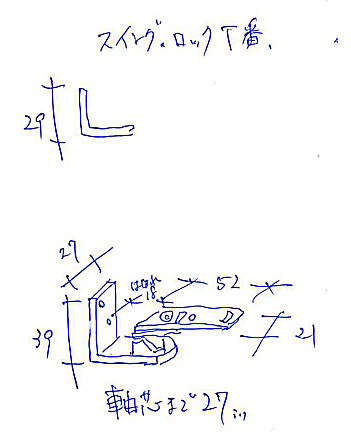 スイング・ロック丁番.
29
27
52
18
39
21
軸芯まで27